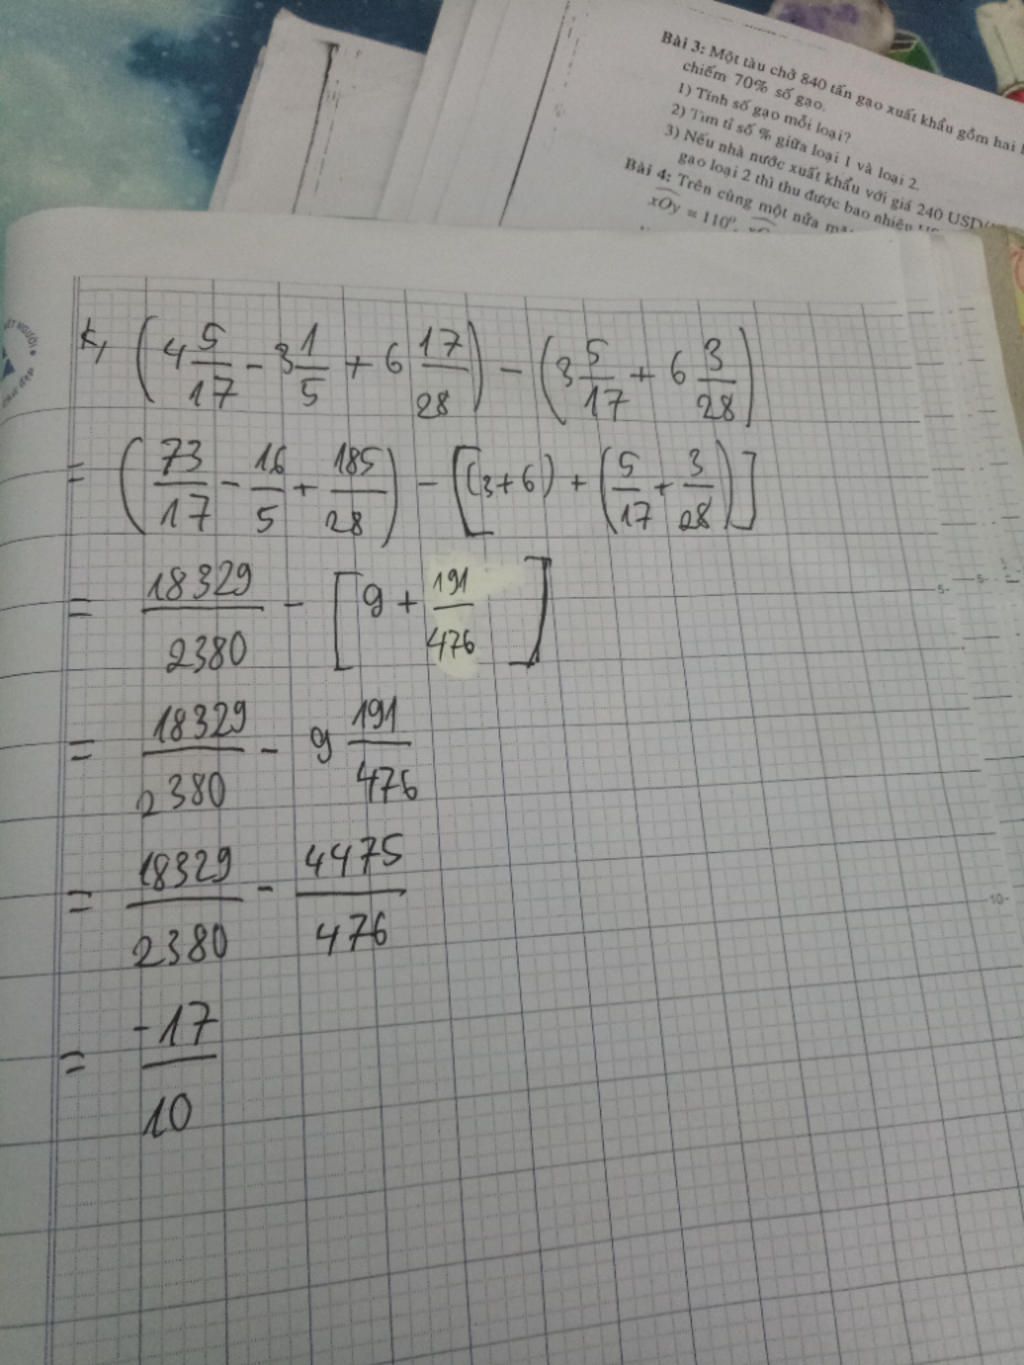 Bài 3: Một tàu chở 840 tấn gạo xuất khẩu gồm hai
chiếm 70% số gạo.
1) Tính số gạo mỗi loại?
2) Tìm tỉ số % giữa loại 1 và loại 2.
3) Nếu nhà nước xuất khẩu với giá 240 USD/
gạo loại 2 thì thu được bao nhiêu
Bài 4: Trên cùng một nửa
xOy = 110⁰,
k, (4 5/17 - 3 1/5 + 6 17/28) - (3 5/17 + 6 3/28)
= (73/17 - 16/5 + 185/28) - [(3+6) + (5/17 + 3/28)]
= 18329/2380 - [9 + 191/476]
= 18329/2380 - 9 191/476
= 18329/2380 - 4475/476
= -17/10
5
5
10